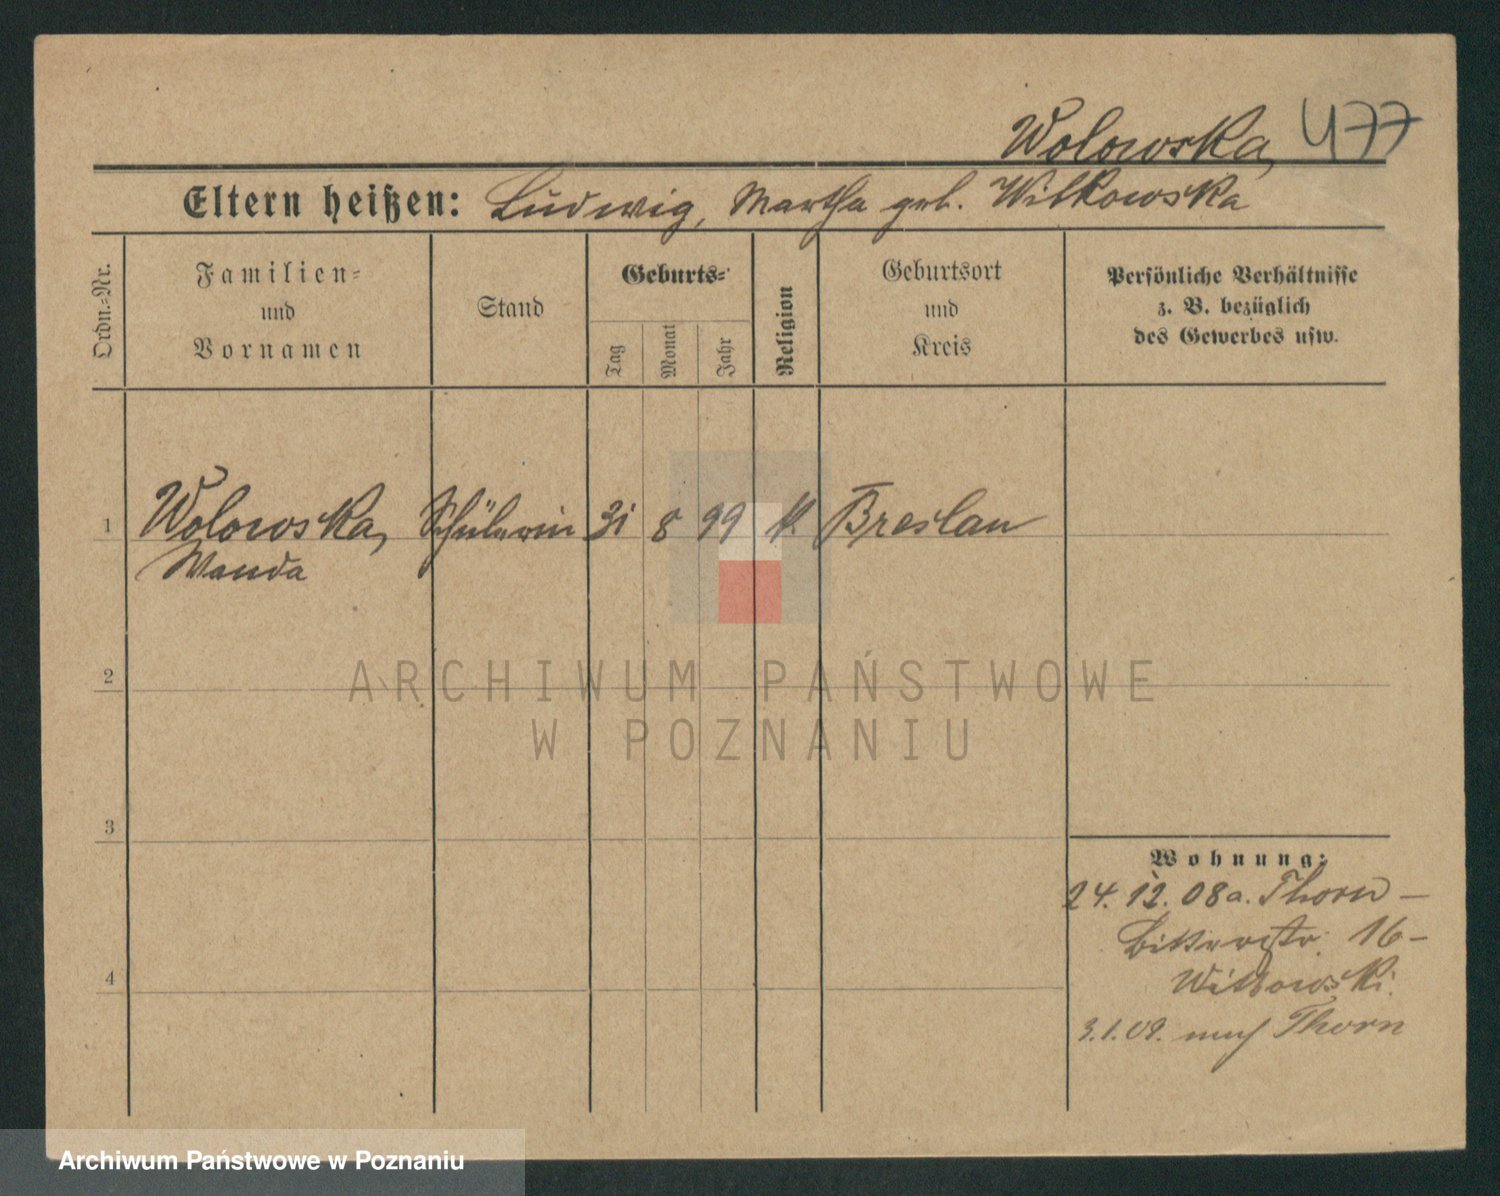 Wolowska, 477
Eltern heißen: Ludwig, Martha geb. Witkowska
Ordn.-Nr.
Familien-
und
Vornamen
Stand
Geburts-
Tag
Monat
Jahr
Religion
Geburtsort
und
Kreis
Persönliche Verhältnisse
z. B. bezüglich
des Gewerbes usw.
1 Wolowska, Schülerin 31 8 99 k. Breslau
Wanda
2
3
4
Wohnung:
24. 12. 08 a. Thorn –
16 –
Witkowski.
3.1.09. nach Thorn
ARCHIWUM PAŃSTWOWE
W POZNANIU
Archiwum Państwowe w Poznaniu